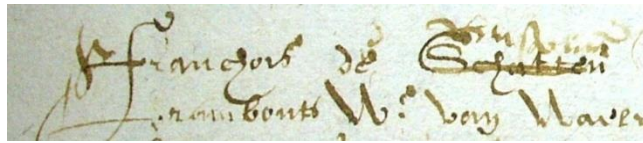 franchois de Schatten
rambouts W.e van Waer